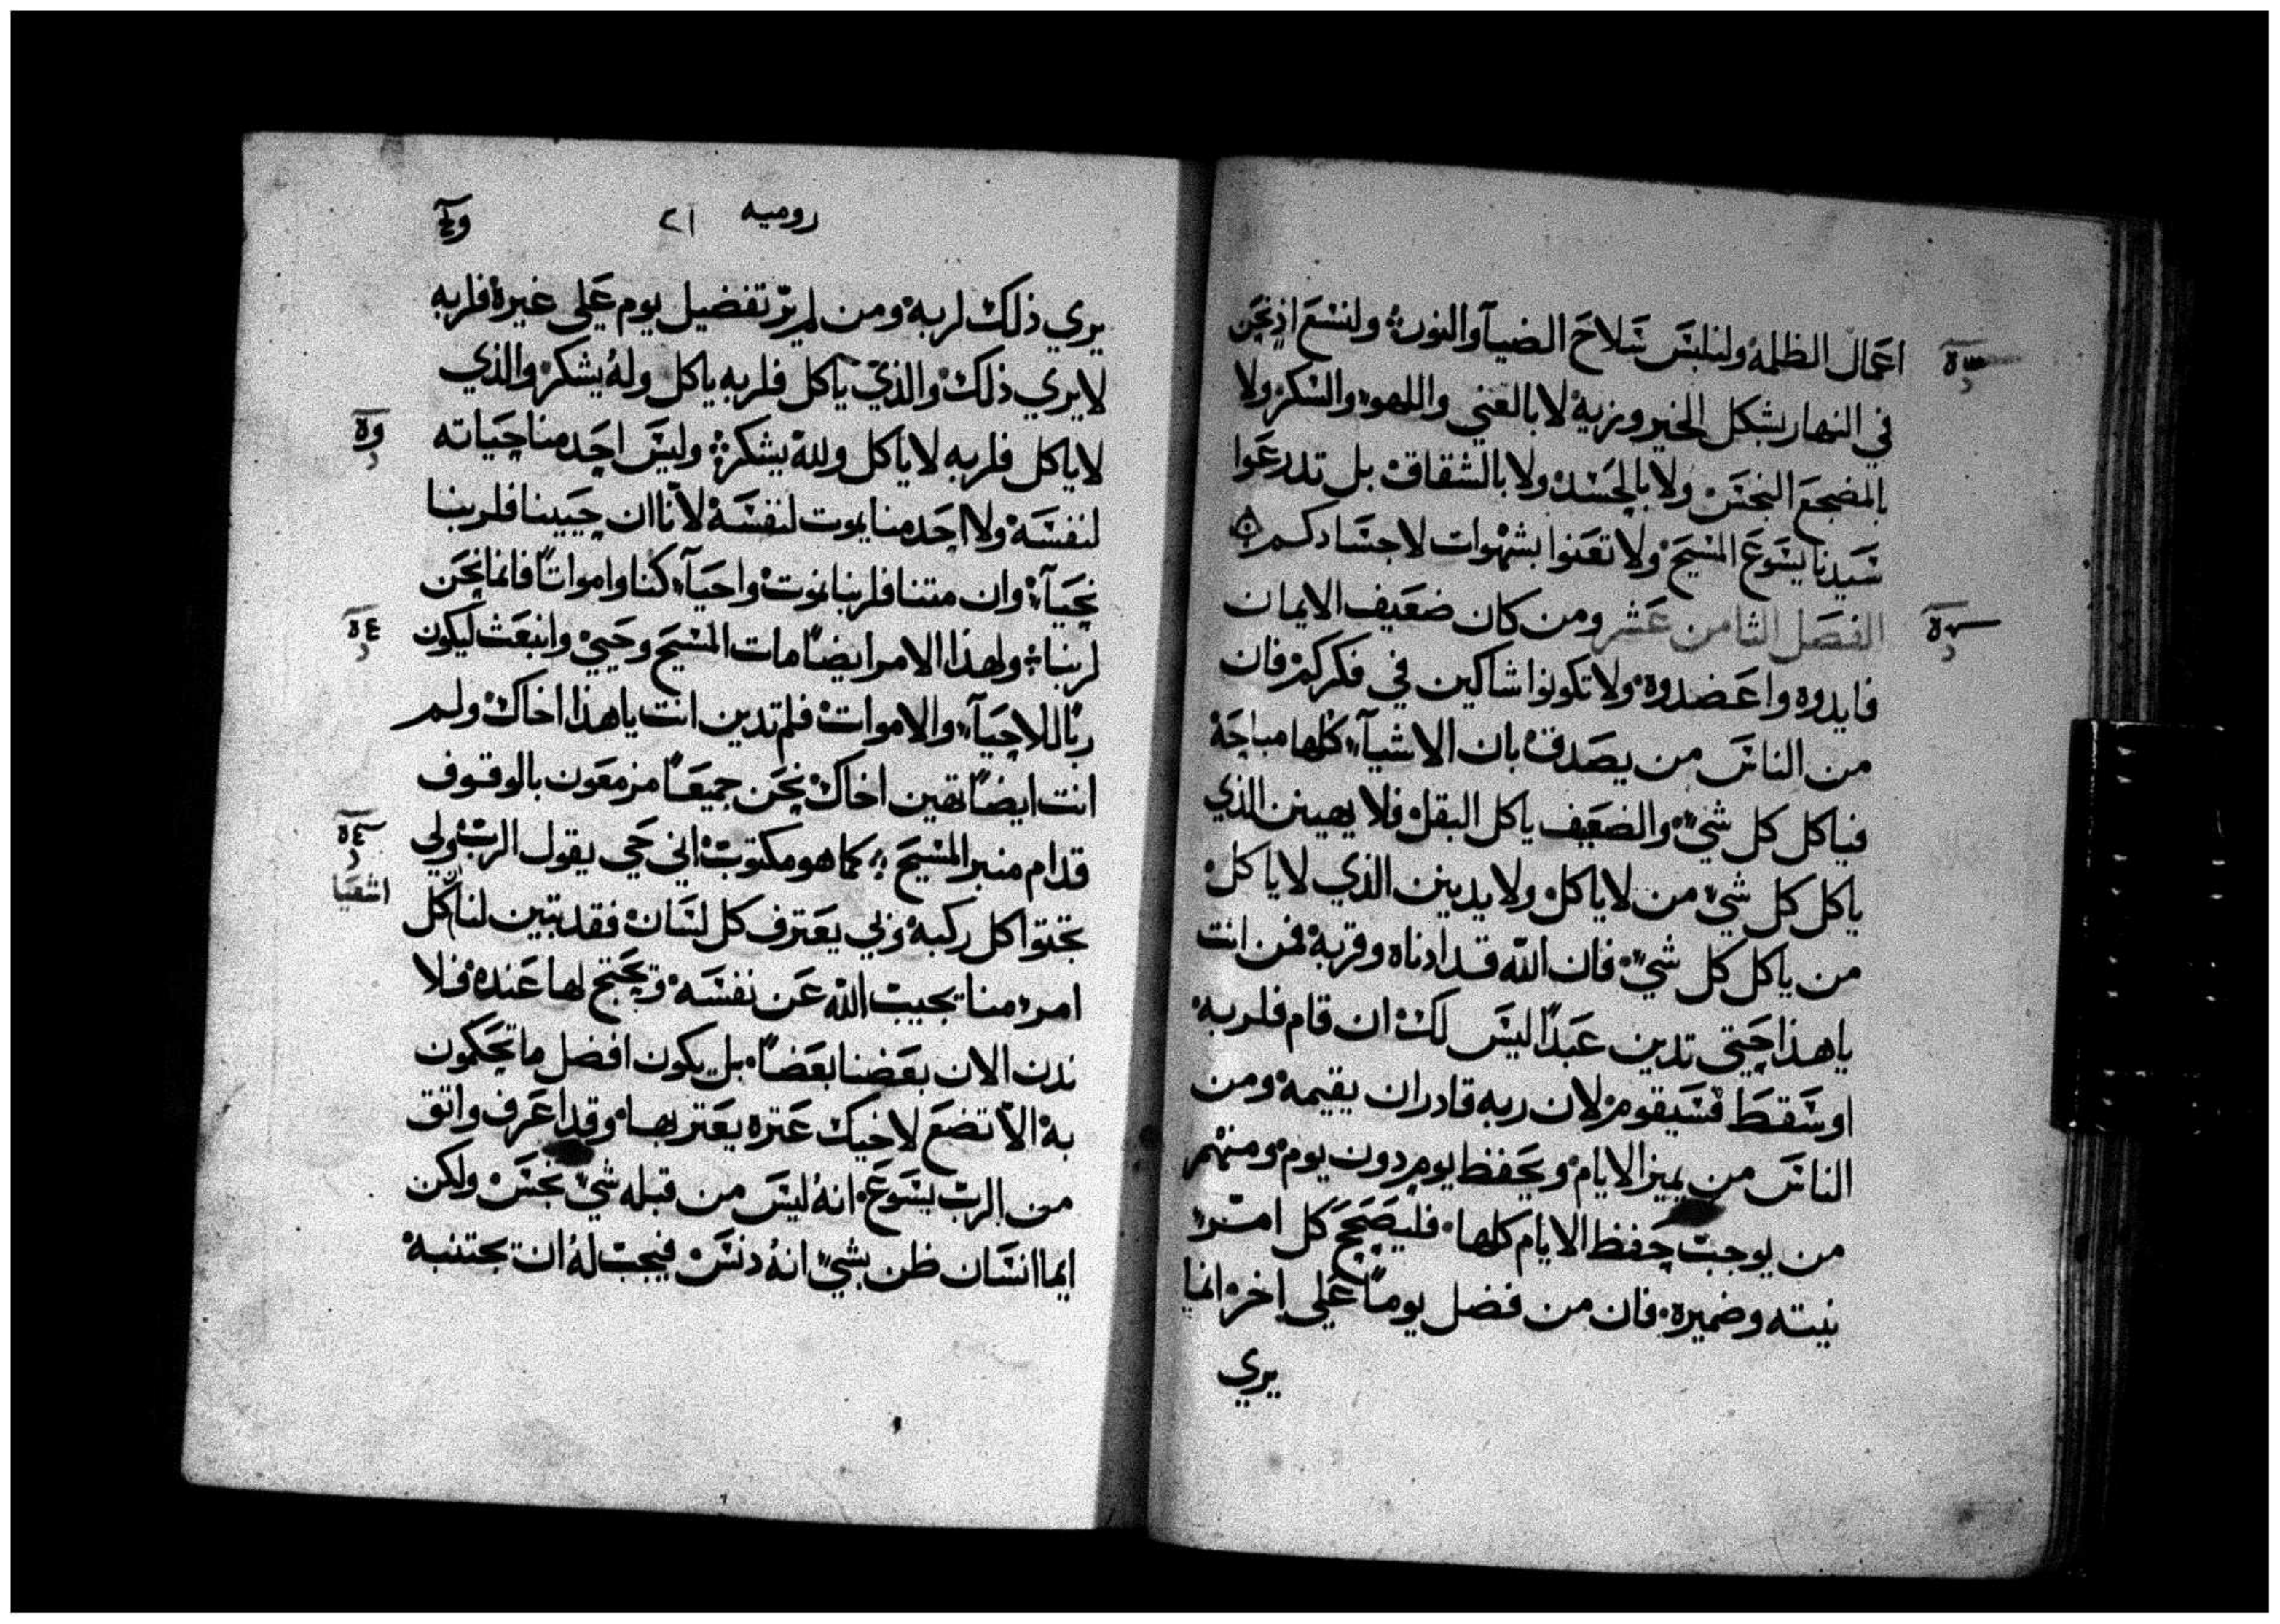 اعمال الظلمه ولنلبس سلاح الضيآ والنور ولنسع اذ نحن
في النهار بشكل الخير وبزيه لا بالغني واللهو والسكر ولا
بالمضجع النجس ولا بالحسد ولا بالشقاق بل تدرعوا
سيدنا يسوع المسيح ولا تعنوا بشهوات لاجسادكم
الفصل الثامن عشر ومن كان ضعيف الايمان
فايدوه واعضدوه ولا تكونوا شاكين في فكركم فان
من الناس من يصدق بان الاشيآء كلها مباحة
فياكل كل شيء والضعيف ياكل البقل فلا يهينن الذي
ياكل كل شيء من لا ياكل ولا يدينن الذي لا ياكل
من ياكل كل شيء فان الله قد ادناه وقربه فمن انت
ياهذا حيتي تدين عبدًا ليس لك ان قام فلربه
او سقط فسيقوم لان ربه قادر ان يقيمه ومن
الناس من يميز الايام ويحفظ يوم دون يوم ومنهم
من يوجب حفظ الايام كلها فليصحح كل امر
نيته وضميره فان من فضل يومًا علي اخر انما
يري
روميه ٢١
يري ذلك لربه ومن لم يرّ تفضيل يوم علي غيره فلربه
لا يري ذلك والذي ياكل فلربه ياكل وله يشكر والذي
لا ياكل فلربه لا ياكل ولله يشكر وليس احد منا حياته
لنفسه ولا احد منا يموت لنفسه لأنا ان حيينا فلربنا
نحيآ وان متنا فلربنا نموت واحيآء كنا وامواتًا فانما نحن
لربنا ولهذا الامر ايضًا مات المسيح وحيي وانبعث ليكون
ربًا للاحيآء والاموات فلم تدين انت ياهذا اخاك ولم
انت ايضًا تهين اخاك نحن جميعًا مزمعون بالوقوف
قدام منبر المسيح كما هو مكتوب اني حي يقول الرب ولي
اشعيا
تجثوا كل ركبة ولي يعترف كل لسان فقد تبين لنا كل
امرء منا يجيب الله عن نفسه ويحتج لها عنده فلا
ندن الان بعضنا بعضًا بل يكون افضل ما تحكمون
به الّا تضع لاخيك عتره يعتر بها وقد اعرف واثق
من الرب يسوع انه ليس من قبله شيء نجس ولكن
ايما انسان ظن بشيء انه دنس فيجب له ان تجتنبه